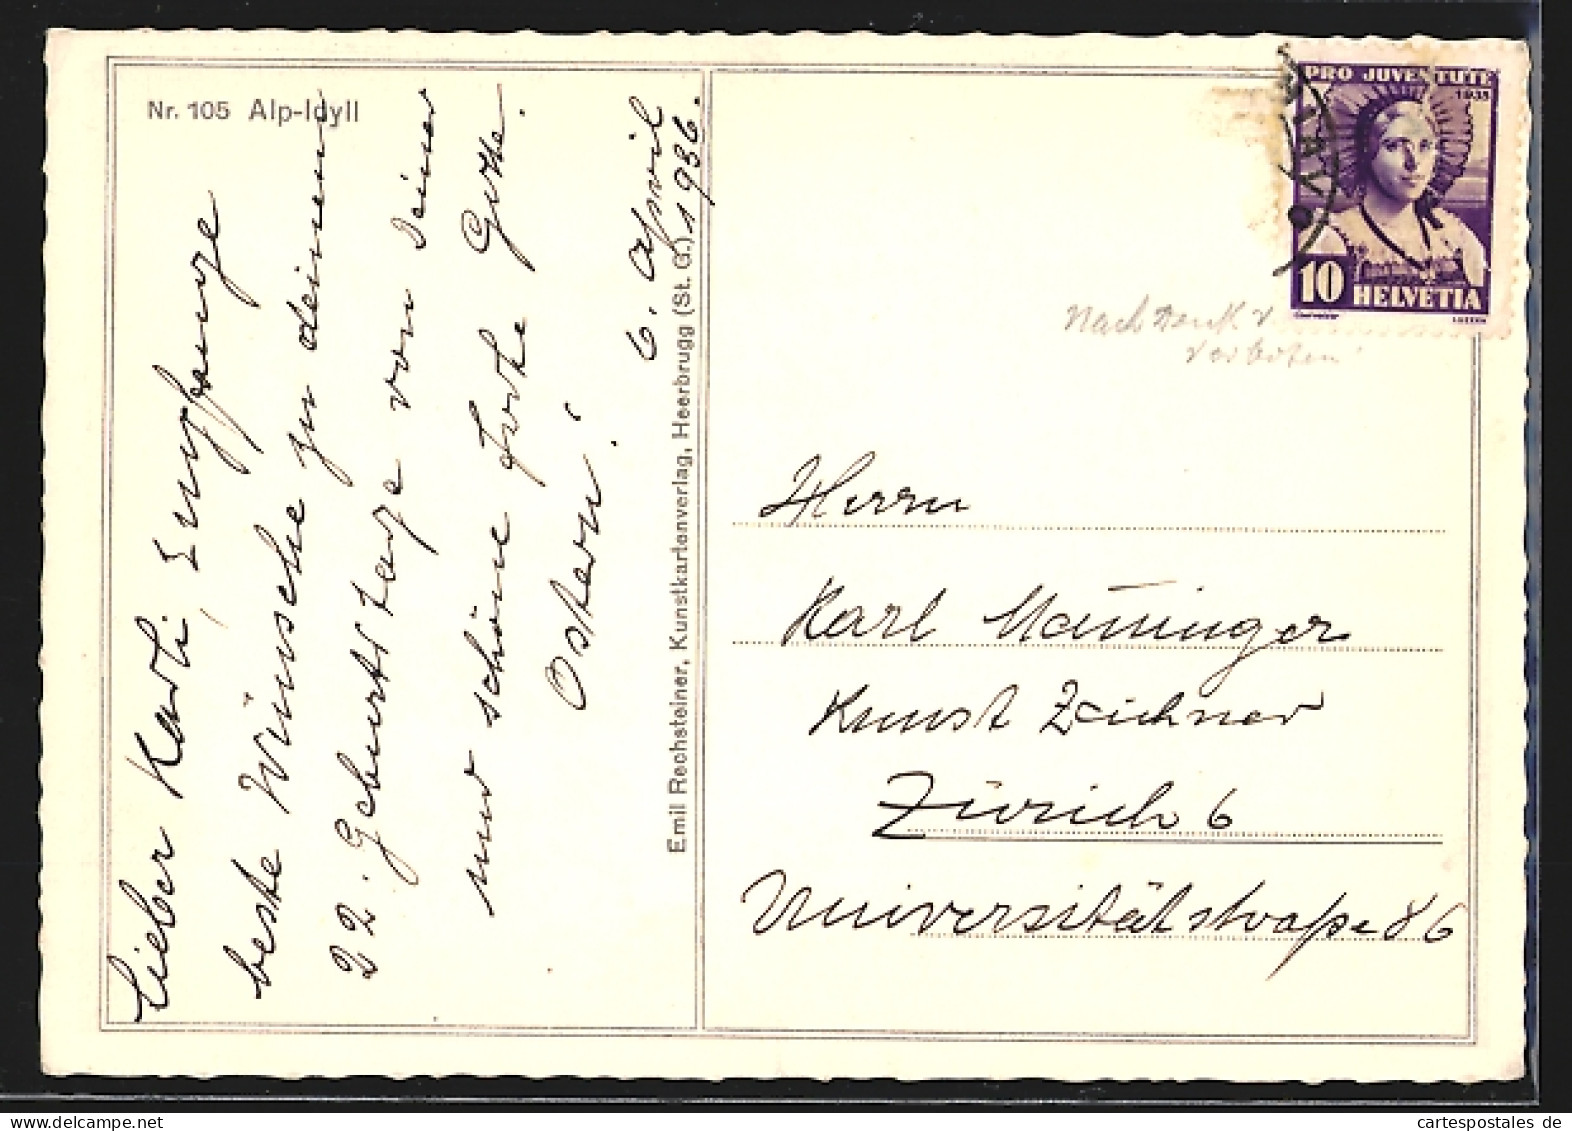 Nr. 105 Alp-Idyll
Lieber Karli, Empfange
beste Wünsche zu deinem
22. Geburtstage von Deiner
und schöne frohe Gotte.
Ostern!
6. April
1936.
Emil Rechsteiner, Kunstkartenverlag, Heerbrugg (St. G.)
PRO JUVENTUTE
1935
10 HELVETIA
Nachdruck
verboten
Herrn
Karl Manninger
Kunst Zeichner
Zürich 6
Universitätstraße 86
cartespostales de